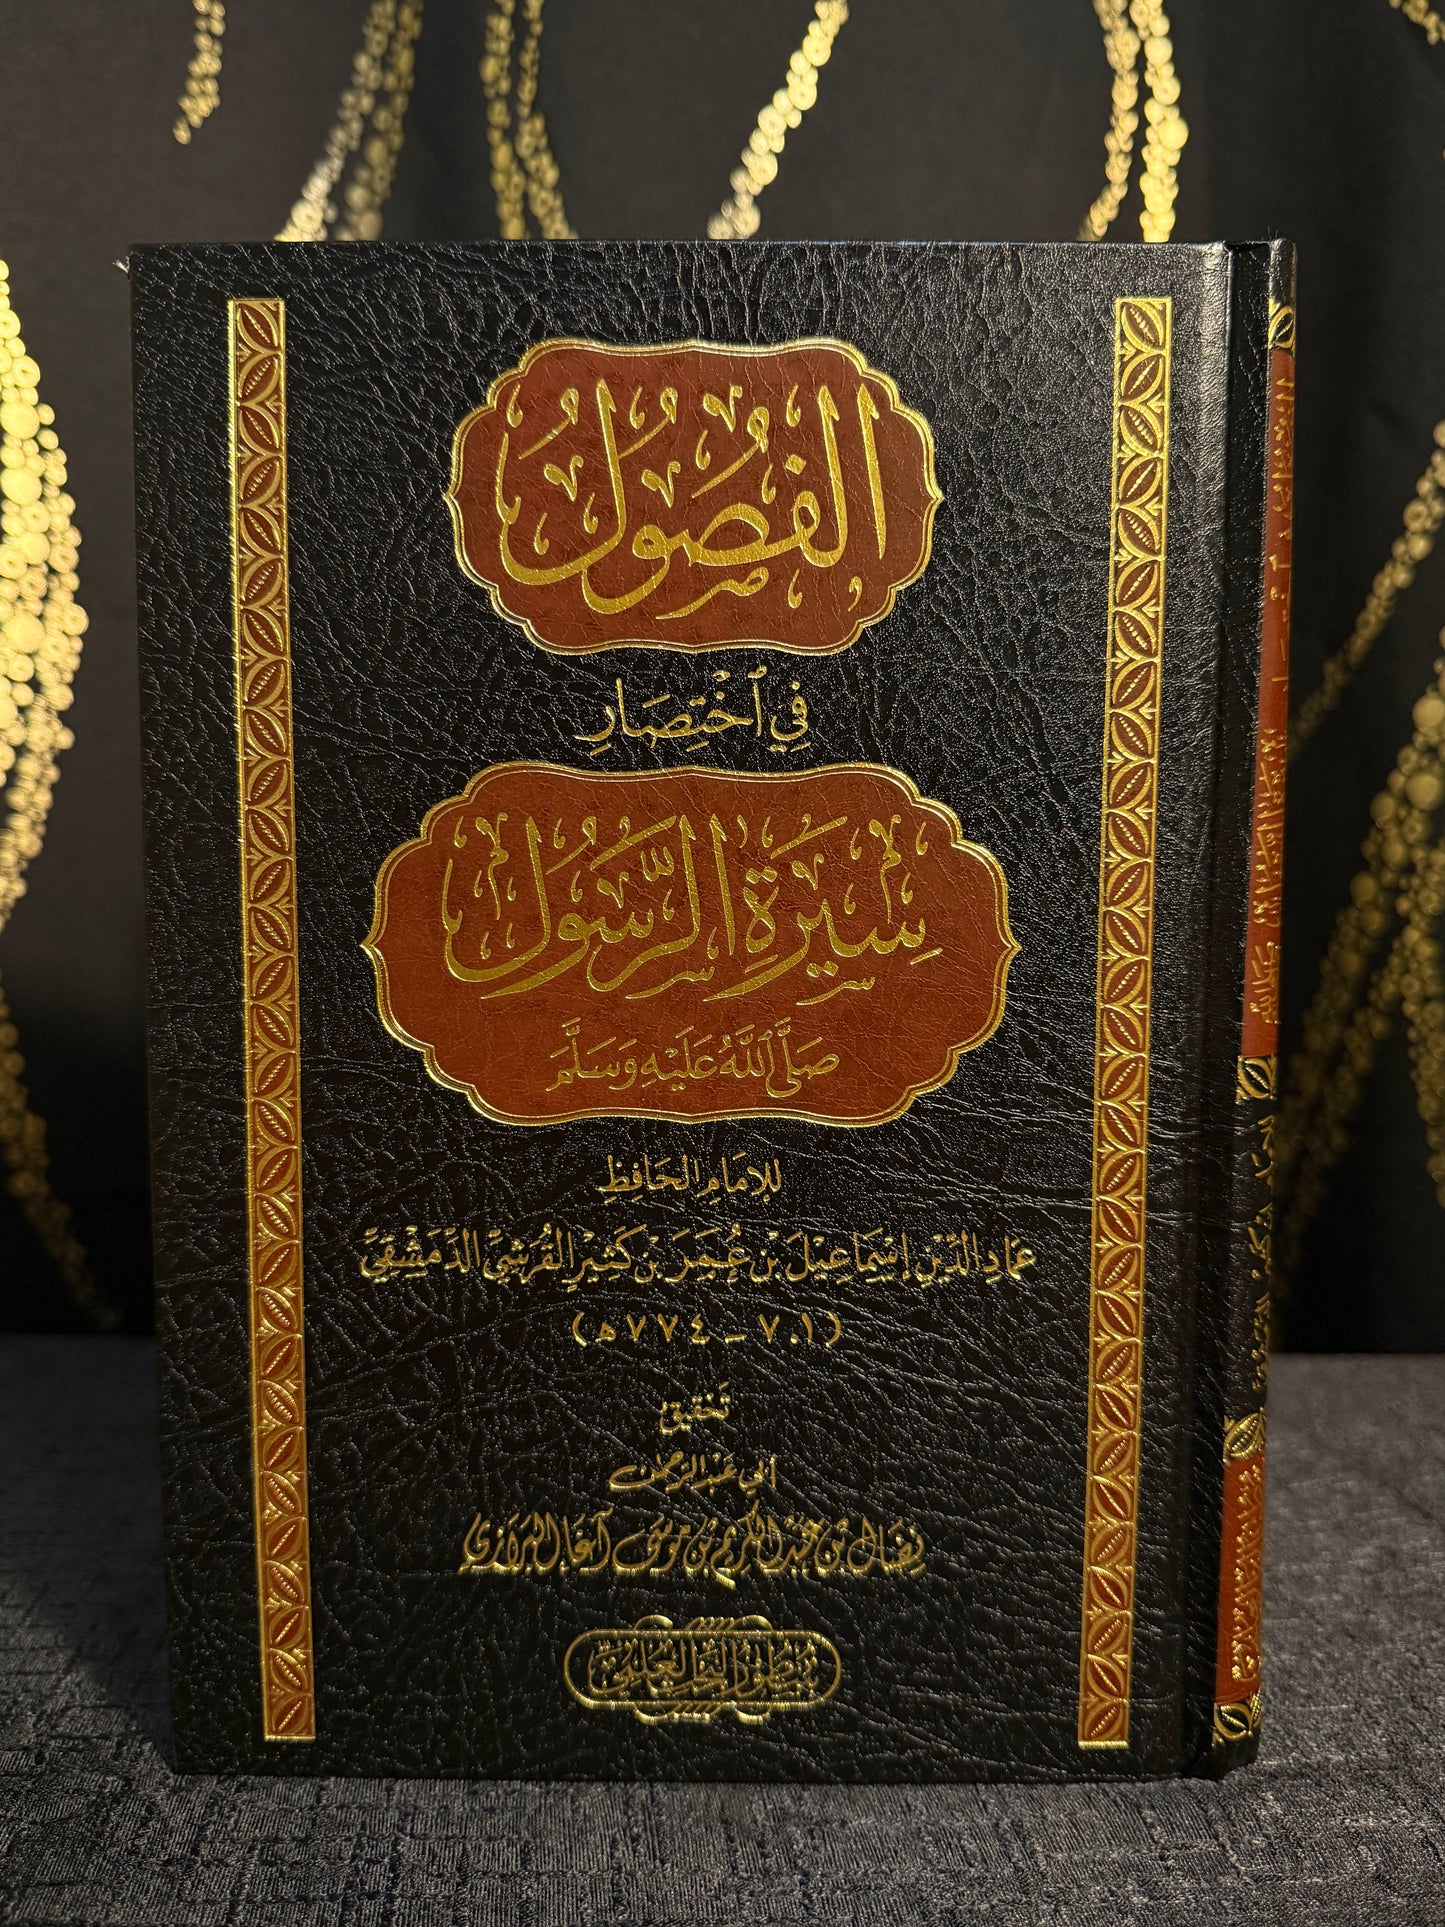 الفُصُولُ
فِي ٱخْتِصَارِ
سِيرَةِ الرَّسُولِ
صَلَّى ٱللَّهُ عَلَيْهِ وَسَلَّمَ
لِلإِمَامِ الحَافِظِ
عِمَادِ الدِّيْنِ إِسْمَاعِيْلَ بْنِ عُمَرَ بْنِ كَثِيْرٍ القُرَشِيِّ الدِّمَشْقِيِّ
(٧٠١ - ٧٧٤ هـ)
تَحْقِيق
أبي عَبْد الرَّحمن
نِضَال بْن عَبْد الكَرِيم بْن مُوسَى آغَا البَرَازِي